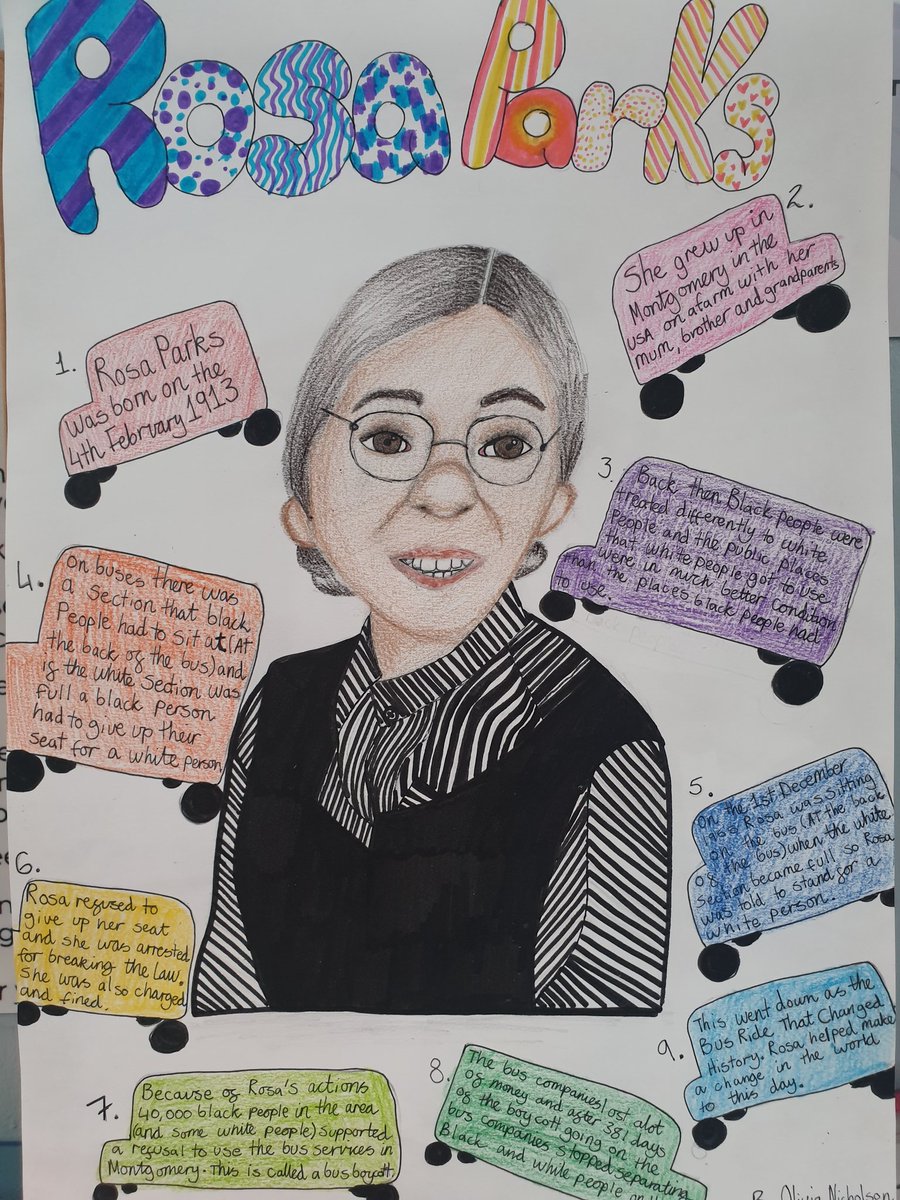 Rosa Parks
1.
Rosa Parks
was born on the
4th February 1913
2.
She grew up in
Montgomery in the
USA on a farm with her
mum, brother and grandparents
3.
Back then Black people were
treated differently to white
People and the public places
that white people got to use
were in much better condition
than the places black people had
to use.
4.
on buses there was
a section that black
People had to sit at (At
the back of the bus) and
if the white section was
full a black person
had to give up their
seat for a white person
5.
On the 1st December
Rosa was sitting
on the bus (At the back
of the bus) when the white
section became full so Rosa
was told to stand for a
white person.
6.
Rosa refused to
give up her seat
and she was arrested
for breaking the law.
she was also charged
and fined.
7.
Because of Rosa's actions
40,000 black people in the area
(and some white people) supported
a refusal to use the bus services in
Montgomery. This is called a bus boycott.
8.
The bus companies lost alot
of money and after 381 days
of the boycott going on the
bus companies stopped separating
Black and white people on
9.
This went down as the
Bus Ride That Changed
History. Rosa helped make
a change in the world
to this day.
Olivia Nicholson.